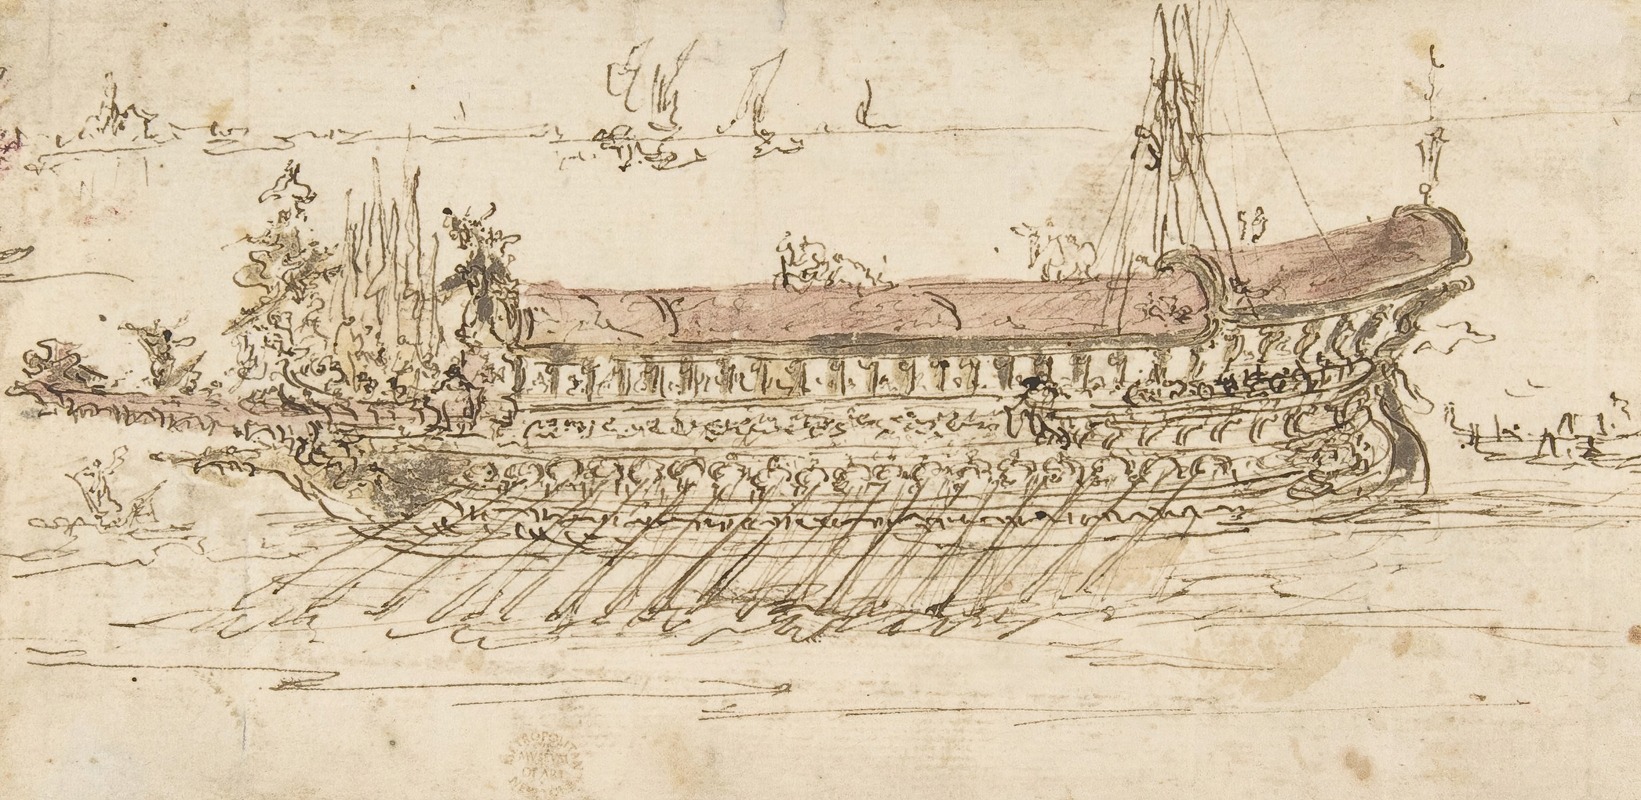 METROPOLITAN
MUSEUM
OF ART
NEW YORK